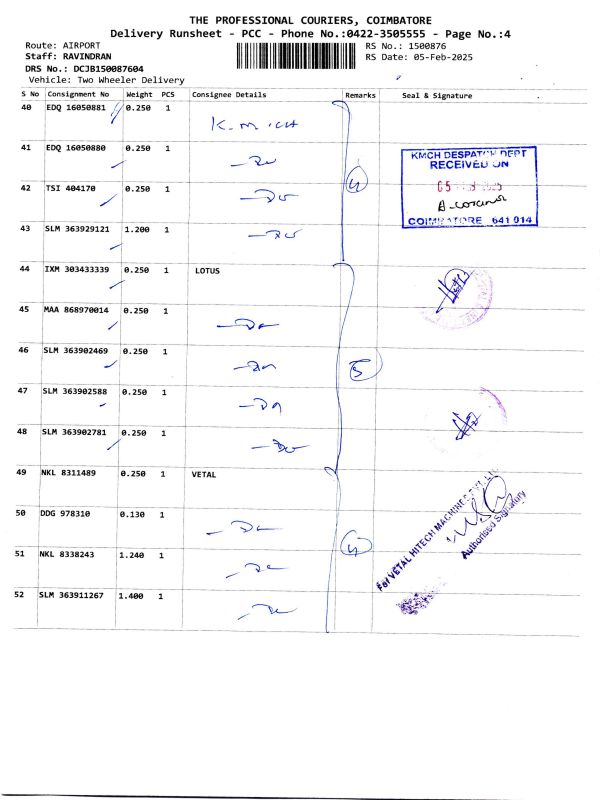 THE PROFESSIONAL COURIERS, COIMBATORE
Delivery Runsheet - PCC - Phone No.:0422-3505555 - Page No.:4
Route: AIRPORT
RS No.: 1500876
Staff: RAVINDRAN
RS Date: 05-Feb-2025
DRS No.: DCJB150087604
Vehicle: Two Wheeler Delivery
S No Consignment No Weight PCS Consignee Details Remarks Seal & Signature
40 EDQ 16050881 0.250 1
41 EDQ 16050880 0.250 1
KMCH DESPATCH DEPT
RECEIVED ON
42 TSI 404170 0.250 1 4
05 2025
COIMBATORE 641 014
43 SLM 363929121 1.200 1
44 IXM 303433339 0.250 1 LOTUS
45 MAA 868970014 0.250 1
46 SLM 363902469 0.250 1 5
47 SLM 363902588 0.250 1
48 SLM 363902781 0.250 1
49 NKL 8311489 0.250 1 VETAL
For VETAL HITECH MACHINES PVT. LTD
Authorised Signatory
50 DDG 978310 0.130 1 4
51 NKL 8338243 1.240 1
52 SLM 363911267 1.400 1